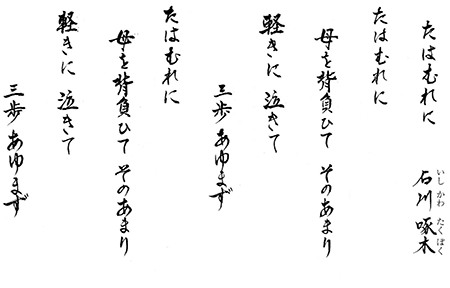 たはむれに
石川啄木
いしかわたくぼく
たはむれに
母を背負ひて そのあまり
軽きに 泣きて
三歩あゆまず
たはむれに
母を背負ひて そのあまり
軽きに 泣きて
三歩あゆまず